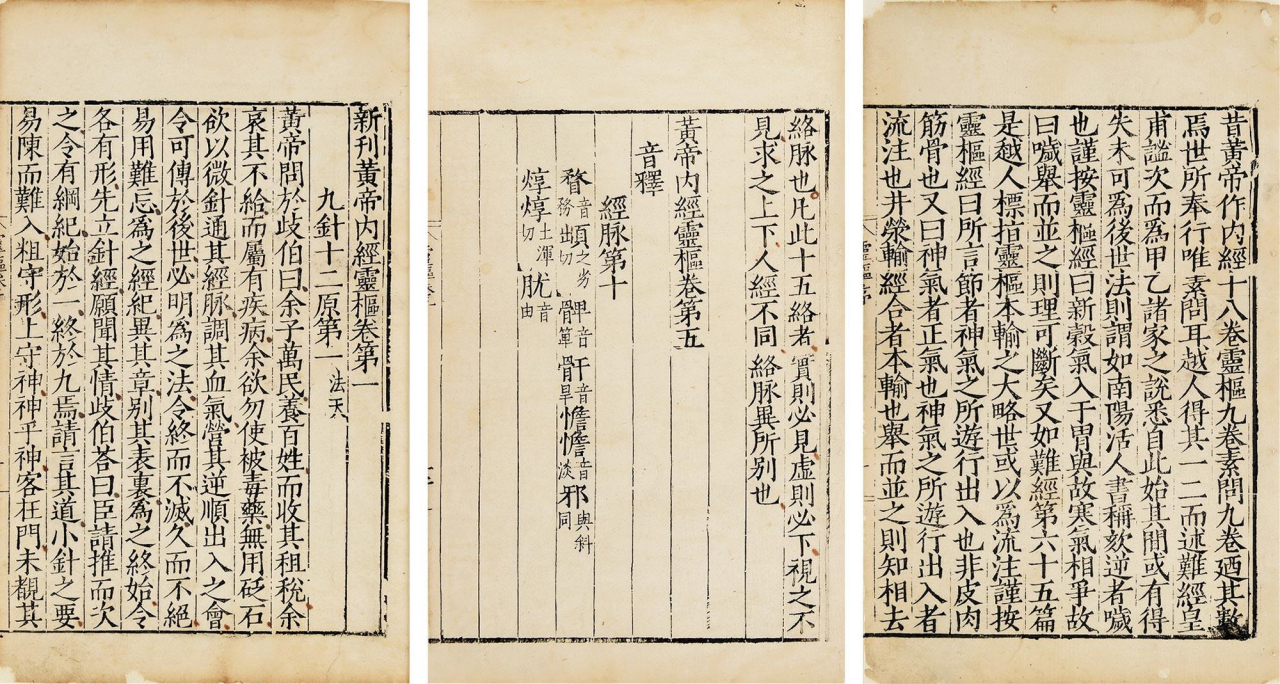 昔黃帝作內經十八卷靈樞九卷素問九卷廼其數
焉世所奉行唯素問耳越人得其一二而述難經皇
甫謐次而爲甲乙諸家之說悉自此始其間或有得
失未可爲後世法則謂如南陽活人書稱欬逆者噦
也謹按靈樞經曰新穀氣入于胃與故寒氣相爭故
曰噦舉而並之則理可斷矣又如難經第六十五篇
是越人標指靈樞本輸之大略世或以爲流注謹按
靈樞經曰所言節者神氣之所遊行出入也非皮肉
筋骨也又曰神氣者正氣也神氣之所遊行出入者
流注也井滎輸經合者本輸也舉而並之則知相去
絡脉也凡此十五絡者實則必見虛則必下視之不
見求之上下人經不同絡脉異所別也
黃帝內經靈樞卷第五
音釋
經脉第十
瞀音務䪼之劣切髀音箄骭音旱憺憺音淡邪與斜同
焞焞土渾切肬音由
新刊黃帝內經靈樞卷第一
九針十二原第一法天
黃帝問於歧伯曰余子萬民養百姓而收其租稅余
哀其不給而屬有疾病余欲勿使被毒藥無用砭石
欲以微針通其經脉調其血氣營其逆順出入之會
令可傳於後世必明爲之法令終而不滅久而不絕
易用難忘爲之經紀異其章別其表裏爲之終始令
各有形先立針經願聞其情歧伯荅曰臣請推而次
之令有綱紀始於一終於九焉請言其道小針之要
易陳而難入粗守形上守神神乎神客在門未覩其